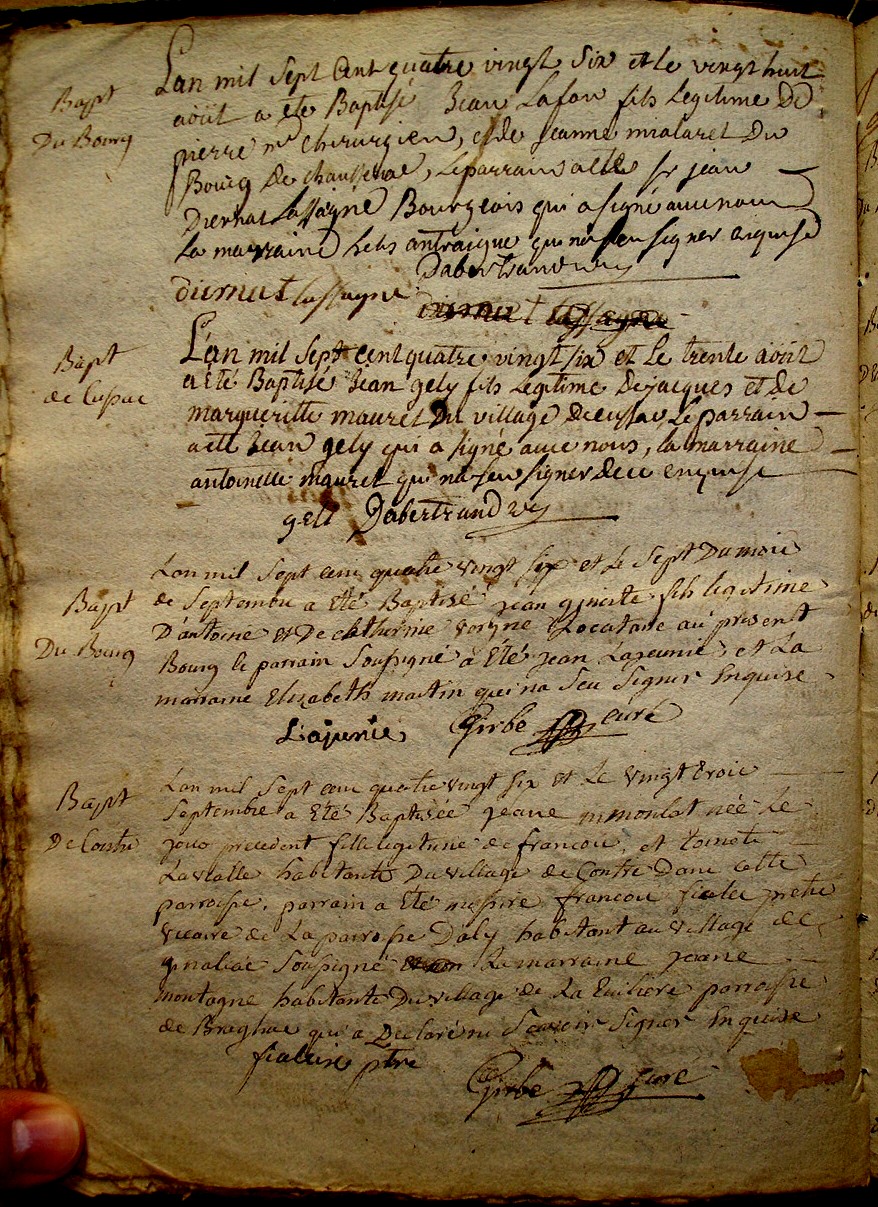 Bapt
Du Bourg
Lan mil sept cent quatre vingt six et le vingt huit
aoüt a ete Baptisé Jean Lafon fils legitime De
pierre me chirurgien, et de jeanne mialaret Du
Bourg De chaussenac, le parrain a ete sr jean
Diernat Lassagne Bourgeois qui a signé avec nous
La marraine antraigue qui na seu signer enquise
Dabertrand
diernat lassagne
Bapt
de Cussac
L'an mil sept cent quatre vingt six et Le trente aoüt
a été Baptisé Jean gely fils Legitime De jacques et de
margueritte mauret Du village De cussac Le parrain
a ete Jean gely qui a signé avec nous, la marraine
antoinette mauret qui na seu signer de ce enquise
geli Dabertrand
Bapt
Du Bourg
Lan mil sept cent quatre vingt six et Le sept Du mois
de Septembre a Eté Baptisé jean gineste fils legitime
D'antoine et De catherine Locataire au present
Bourg le parrain Soussigné a Eté jean Lajeunie, et La
marraine Elizabeth martin qui na Seu Signer Enquise
Lajunie Girbe curé
Bapt
De Contre
Lan mil Sept cent quatre vingt six et Le vingt trois
Septembre a Eté Baptisée jeane monlat née Le
jour precedent fille legitime de francois, et toinete
Lavialle habitants Du village de Contre Dans cette
parroisse, parrain a Eté messire francois fialeix pretre
vicaire de La parroisse Daly habitant au village de
Soussigné La marraine jeane
montagne habitante Du village de La parroisse
de Braghac qui a Declaré ne Scavoir Signer Enquise
fialeix ptre
Girbe curé